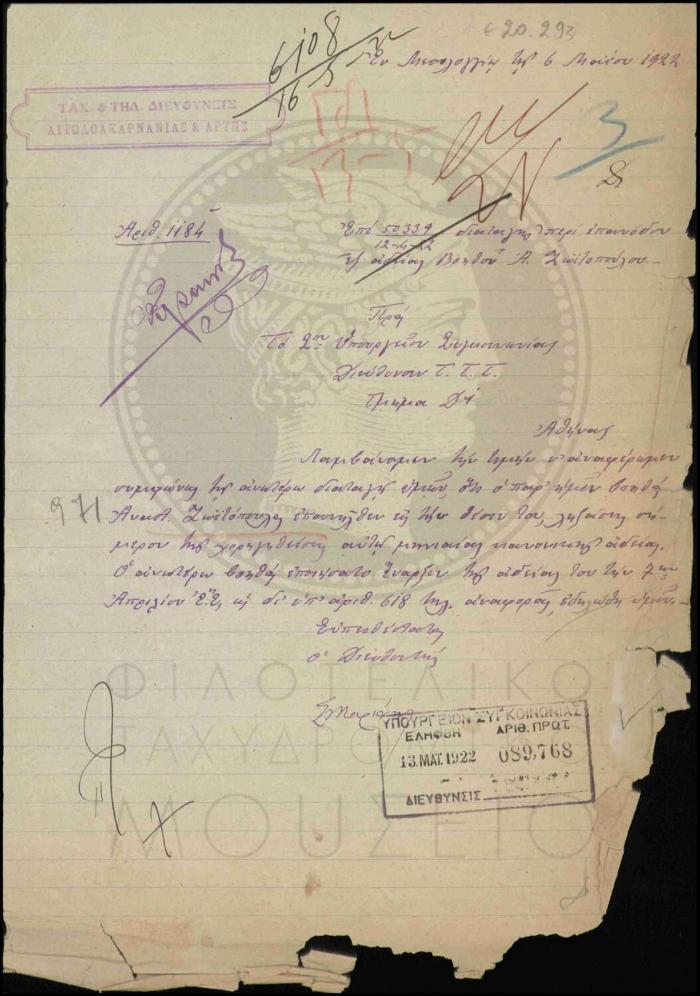 €20.293
6108
16-5-22
Ἐν Μεσολογγίῳ τῇ 6 Μαΐου 1922
ΤΑΧ. & ΤΗΛ. ΔΙΕΥΘΥΝΣΙΣ
ΑΙΤΩΛΟΑΚΑΡΝΑΝΙΑΣ & ΑΡΤΗΣ
3
Ἀριθ. 1184
Ἐπί 50339 διαταγῆς περί ἐπανόδου
12-4-22
ἐξ ἀδείας Βοηθοῦ Ἀ. Ζωϊτοπούλου
Πρός
Τό 2ον Ὑπουργεῖον Συγκοινωνίας
Διεύθυνσιν Τ. Τ. Τ.
Τμῆμα Δ
Ἀθήνας
Λαμβάνομεν τήν τιμήν ν' ἀναφέρωμεν
συμφώνως τῇ ἀνωτέρω διαταγῇ ὑμῶν, ὅτι ὁ παρ' ἡμῖν βοηθός
971
Ἀναστ. Ζωϊτόπουλος ἐπανῆλθεν εἰς τήν θέσιν του, ληξάσης σή-
μερον τῆς χορηγηθείσης αὐτῷ μηνιαίας κανονικῆς ἀδείας.
Ὁ ἀνωτέρω βοηθός ἐποιήσατο ἔναρξιν τῆς ἀδείας του τήν 7ην
Ἀπριλίου ἐ.ἔ, ὡς δι' ὑπ' ἀριθ. 618 τηλ. ἀναφορᾶς ἐδηλώθη ὑμῖν.
Εὐπειθέστατος
ὁ Διευθυντής
ΥΠΟΥΡΓΕΙΟΝ ΣΥΓΚΟΙΝΩΝΙΑΣ
ΕΛΗΦΘΗ ΑΡΙΘ. ΠΡΩΤ.
13. ΜΑΪ. 1922 089,768
ΔΙΕΥΘΥΝΣΙΣ
ΦΙΛΟΤΕΛΙΚΟ
ΤΑΧΥΔΡΟΜΙΚΟ
ΜΟΥΣΕΙΟ